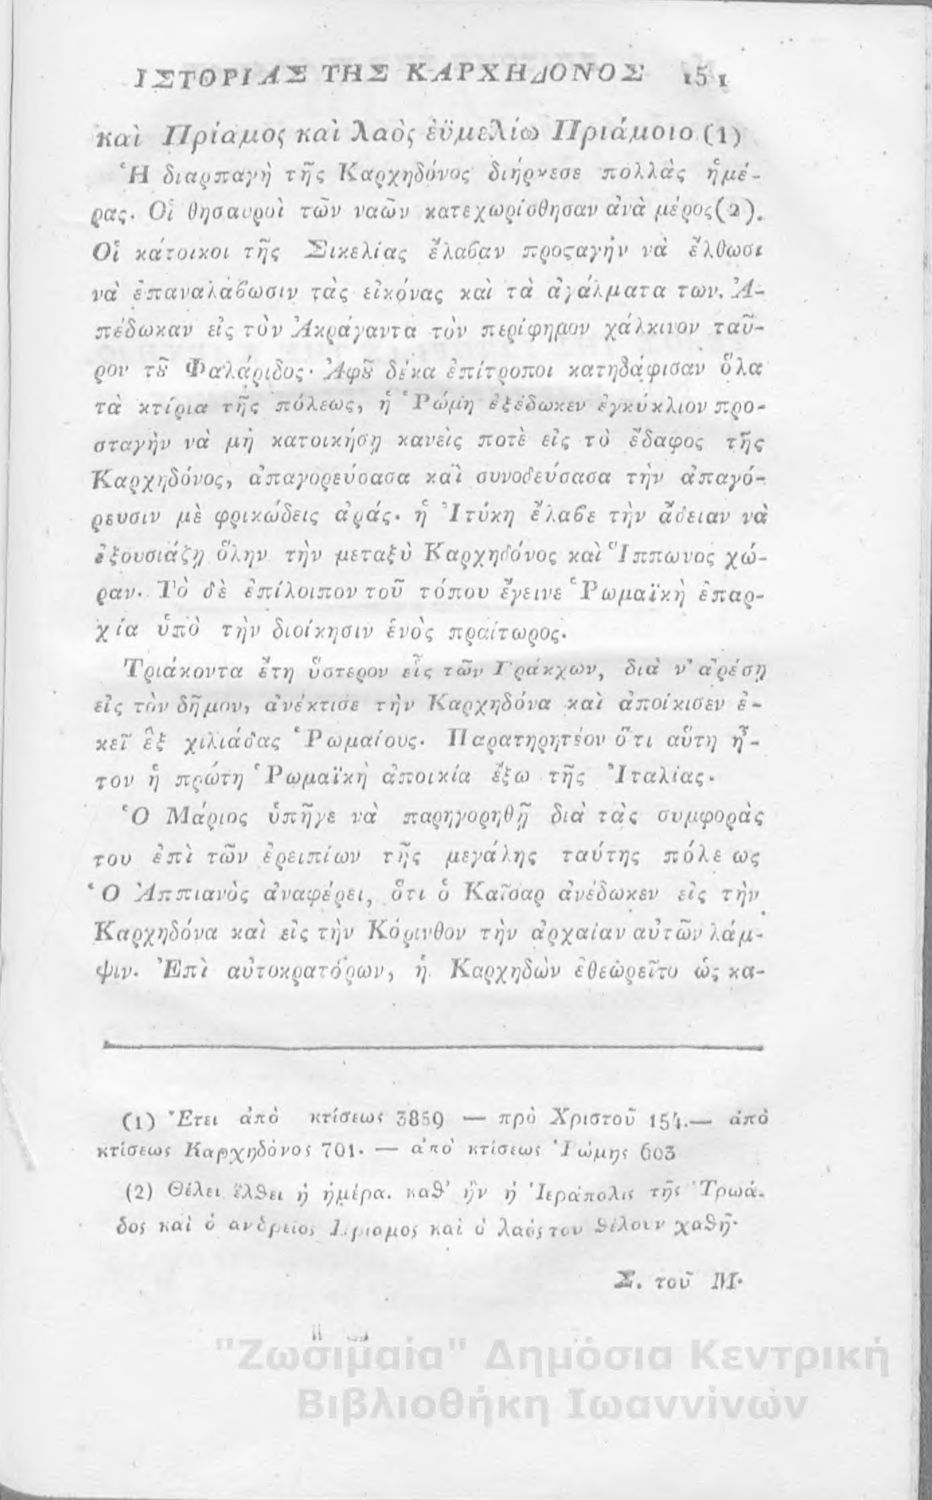 ΙΣΤΟΡΙΑΣ ΤΗΣ ΚΑΡΧΗΔΟΝΟΣ 151
καὶ Πρίαμος καὶ λαὸς ἐϋμελίω Πριάμοιο (1)
Ἡ διαρπαγὴ τῆς Καρχηδόνος διήρκεσε πολλὰς ἡμέ-
ρας. Οἱ θησαυροὶ τῶν ναῶν κατεχωρίσθησαν ἀνὰ μέρος(2).
Οἱ κάτοικοι τῆς Σικελίας ἔλαβαν προςαγὴν νὰ ἔλθωσι
νὰ ἐπαναλάβωσιν τὰς εἰκόνας καὶ τὰ ἀγάλματα των. Ἀ-
πέδωκαν εἰς τὸν Ἀκράγαντα τὸν περίφημον χάλκινον ταῦ-
ρον τȣ͂ Φαλάριδος· Ἀφȣ͂ δέκα ἐπίτροποι κατηδάφισαν ὅλα
τὰ κτίρια τῆς πόλεως, ἡ Ῥώμη ἐξέδωκεν ἐγκύκλιον προ-
σταγὴν νὰ μὴ κατοικήσῃ κανεὶς ποτὲ εἰς τὸ ἔδαφος τῆς
Καρχηδόνος, ἀπαγορεύσασα καὶ συνοδεύσασα τὴν ἀπαγό-
ρευσιν μὲ φρικώδεις ἀράς· ἡ Ἰτύκη ἔλαβε τὴν ἄδειαν νὰ
ἐξουσιάζῃ ὅλην τὴν μεταξὺ Καρχηδόνος καὶ Ἵππωνος χώ-
ραν. Τὸ δὲ ἐπίλοιπον τοῦ τόπου ἔγεινε Ῥωμαϊκὴ ἐπαρ-
χία ὑπὸ τὴν διοίκησιν ἑνὸς πραίτωρος.
Τριάκοντα ἔτη ὕστερον εἷς τῶν Γράκχων, διὰ ν' ἀρέσῃ
εἰς τὸν δῆμον, ἀνέκτισε τὴν Καρχηδόνα καὶ ἀποίκισεν ἐ-
κεῖ ἓξ χιλιάδας Ῥωμαίους. Παρατηρητέον ὅτι αὕτη ἦ-
τον ἡ πρώτη Ῥωμαϊκὴ ἀποικία ἔξω τῆς Ἰταλίας.
Ὁ Μάριος ὑπῆγε νὰ παρηγορηθῇ διὰ τὰς συμφορὰς
του ἐπὶ τῶν ἐρειπίων τῆς μεγάλης ταύτης πόλεως
Ὁ Ἀππιανὸς ἀναφέρει, ὅτι ὁ Καῖσαρ ἀνέδωκεν εἰς τὴν
Καρχηδόνα καὶ εἰς τὴν Κόρινθον τὴν ἀρχαίαν αὐτῶν λάμ-
ψιν. Ἐπὶ αὐτοκρατόρων, ἡ Καρχηδὼν ἐθεωρεῖτο ὡς κα-
(1) Ἔτει ἀπὸ κτίσεως 3859 — πρὸ Χριστοῦ 154.— ἀπὸ
κτίσεως Καρχηδόνος 701. — ἀπὸ κτίσεως Ῥώμης 603
(2) Θέλει ἔλθει ἡ ἡμέρα. καθ' ἣν ἡ Ἱεράπολις τῆς Τρωά-
δος καὶ ὁ ἀνδρεῖος Πρίαμος καὶ ὁ λαός του θέλουν χαθῆ·
Σ. τοῦ Μ·
"Ζωσιμαία" Δημόσια Κεντρική
Βιβλιοθήκη Ιωαννίνων